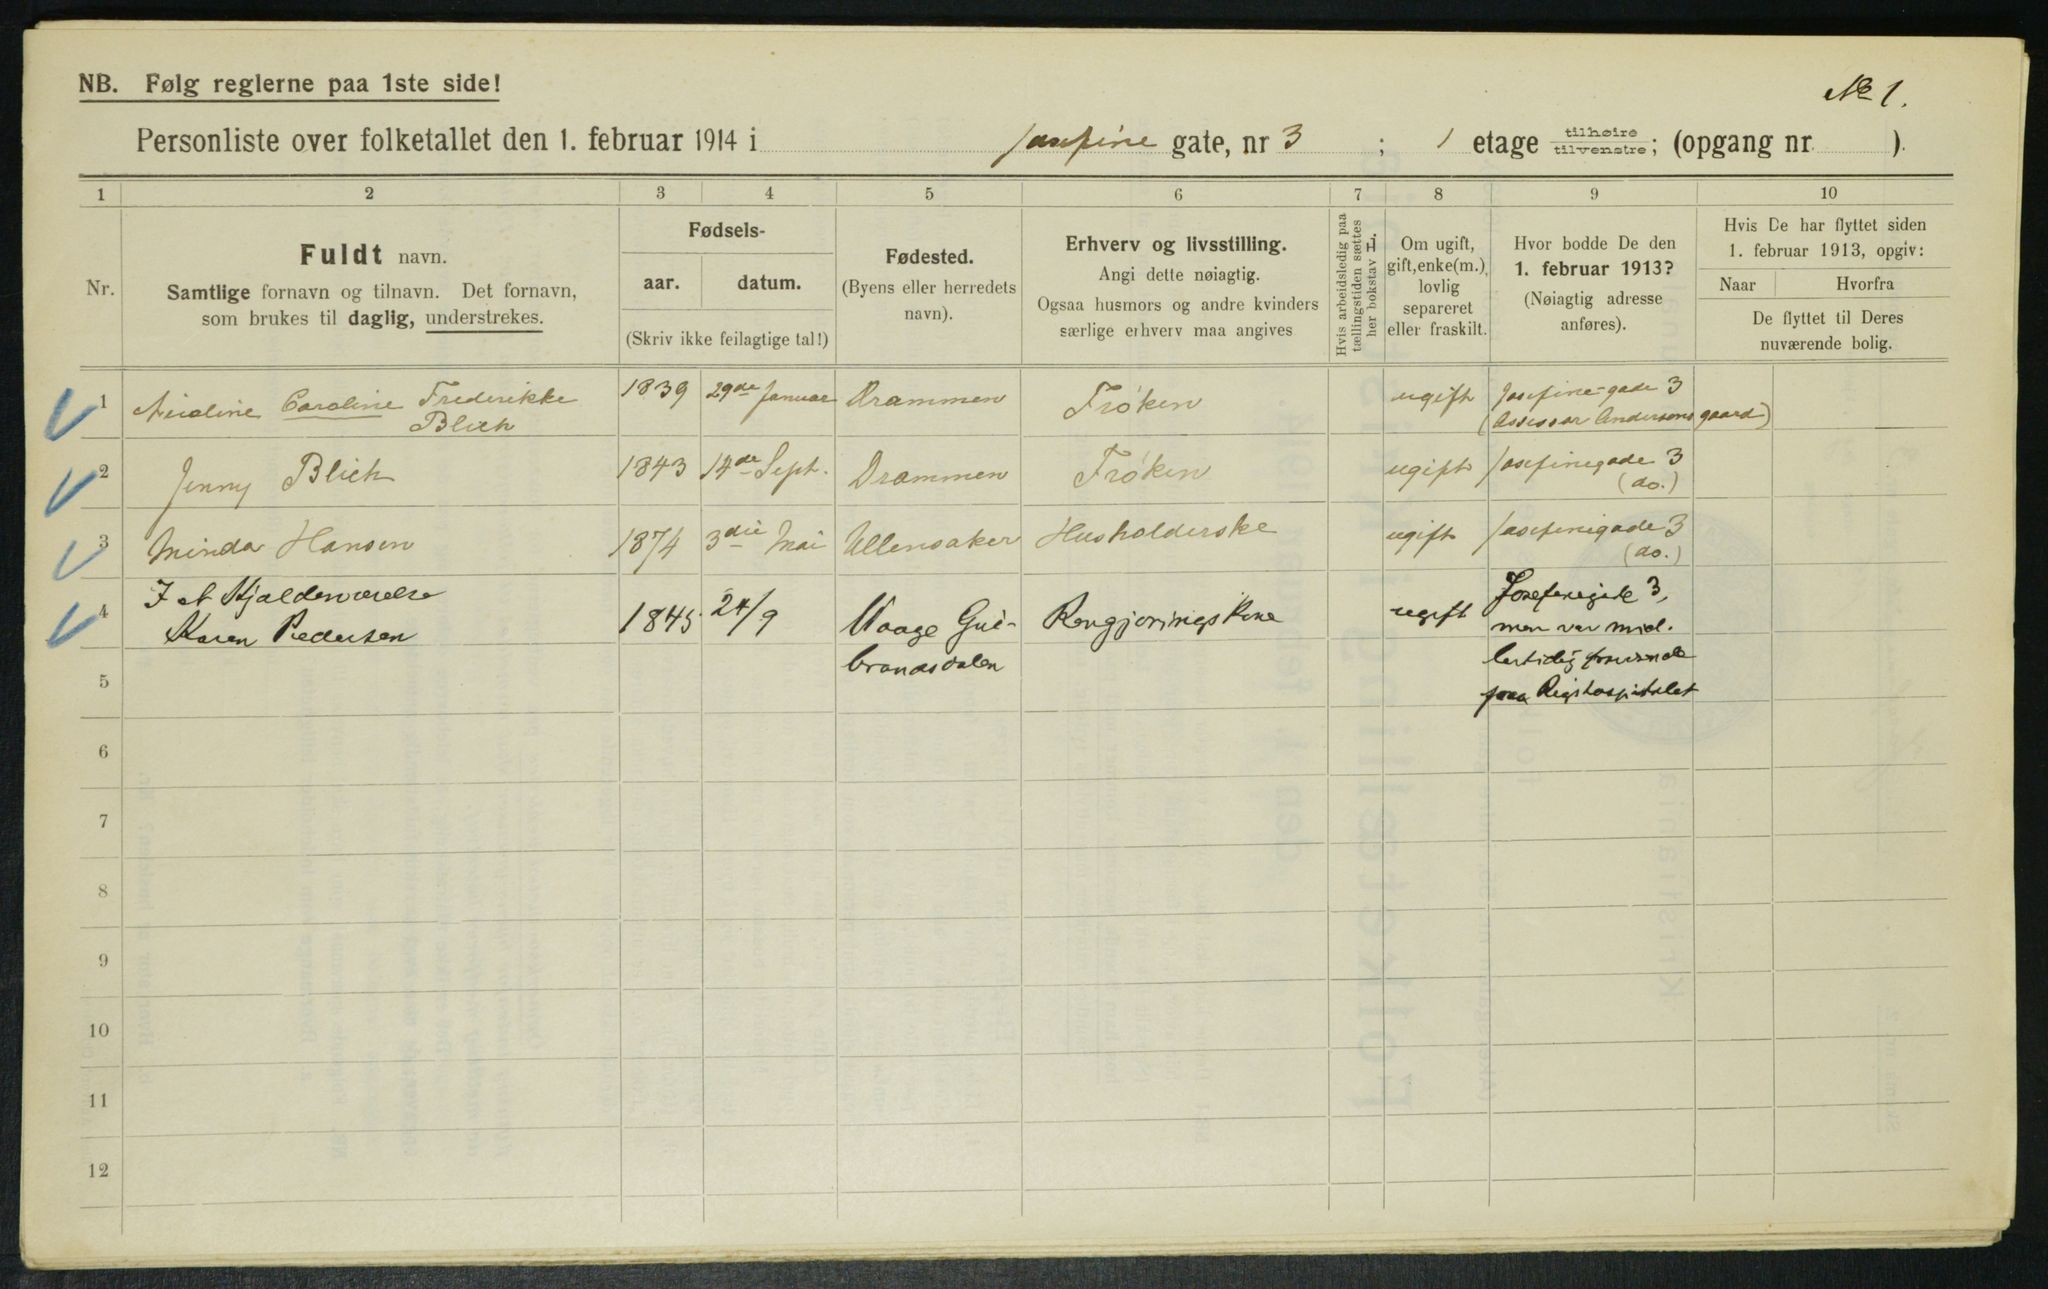 NB. Følg reglerne paa 1ste side!
№ 1.
Personliste over folketallet den 1. februar 1914 i Josefine gate, nr 3 ; 1 etage tilhøire tilvenstre; (opgang nr. ).
1 2 3 4 5 6 7 8 9 10
Nr.
Fuldt navn.
Samtlige fornavn og tilnavn. Det fornavn,
som brukes til daglig, understrekes.
Fødsels-
aar. datum.
(Skriv ikke feilagtige tal!)
Fødested.
(Byens eller herredets
navn).
Erhverv og livsstilling.
Angi dette nøiagtig.
Ogsaa husmors og andre kvinders
særlige erhverv maa angives
Hvis arbeidsledig paa
tællingstiden sættes
her bokstav L.
Om ugift,
gift, enke(m.),
lovlig
separeret
eller fraskilt.
Hvor bodde De den
1. februar 1913?
(Nøiagtig adresse
anføres).
Hvis De har flyttet siden
1. februar 1913, opgiv:
Naar Hvorfra
De flyttet til Deres
nuværende bolig.
1 Nicoline Caroline Frederikke 1839 29de Januar Drammen Frøken ugift Josefine-gade 3
Blich (Assessor Andersens gaard)
2 Jenny Blich 1843 14de Sept. Drammen Frøken ugift Josefinegade 3
(do.)
3 Minda Hansen 1874 3die Mai Ullensaker Husholderske ugift Josefinegade 3
(do.)
I et Kjælderværelse
4 Karen Pedersen 1845 24/9 Vaage Gui- Rengjøringskone ugift Josefinegade 3,
men var mid-
brandsdalen lertidig
5 paa Rigshospitalet
6
7
8
9
10
11
12